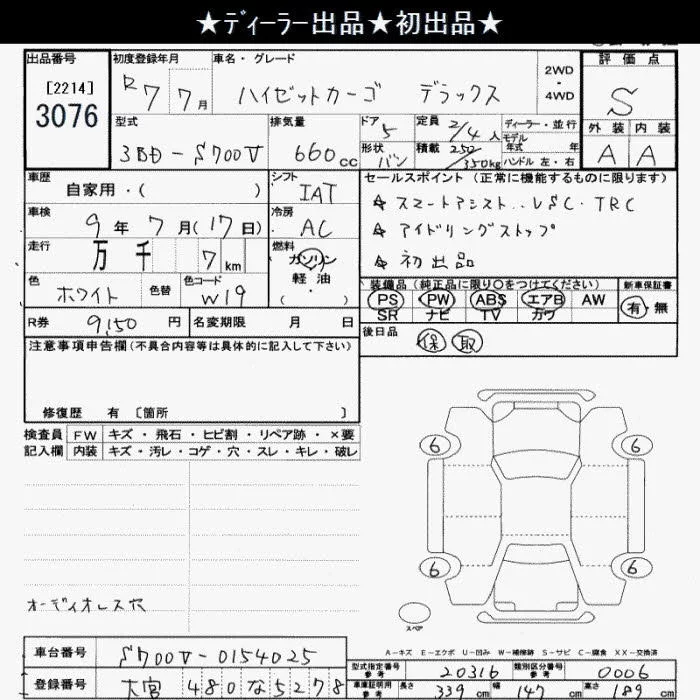 ★ディーラー出品★初出品★
出品番号 初度登録年月 車名・グレード 評価点
[2214]
3076
R7 7月 ハイゼットカーゴ デラックス 2WD・4WD S
型式 排気量 ドア 5 定員 2/4人 ディーラー・並行 外装 内装
モデル年式 年
3BD-S700V 660cc 形状 バン 積載 250/350kg ハンドル 左・右 A A
車歴 シフト セールスポイント(正常に機能するものに限ります)
自家用・( ) IAT
車検 9年7月(17日) 冷房 AC
★スマートアシスト..VSC・TRC
★アイドリングストップ
★初出品
走行 万 千 7km 燃料 ガソリン・軽油・( )
色 ホワイト 色替 色コード W19
装備品(純正品に限り○をつけてください) 新車保証書
PS PW ABS エアB AW 有・無
SR ナビ TV カワ
R券 9,150円 名変期限 月 日
後日品 保 取
注意事項申告欄(不具合内容等は具体的に記入して下さい)
修復歴 有〔箇所 〕
検査員 FW キズ・飛石・ヒビ割・リペア跡・×要
記入欄 内装 キズ・汚レ・コゲ・穴・スレ・キレ・破レ
6 6
6 6
オーディオレス
スペア
A－キズ E－エクボ U－凹み W－補修跡 S－サビ C－腐食 XX－交換済
車台番号 S700V-0154025
登録番号 大宮 480な5278
型式指定番号 参考 20316 類別区分番号 参考 0006
車庫証明用 参考 長さ 339cm 幅 147cm 高さ 189cm